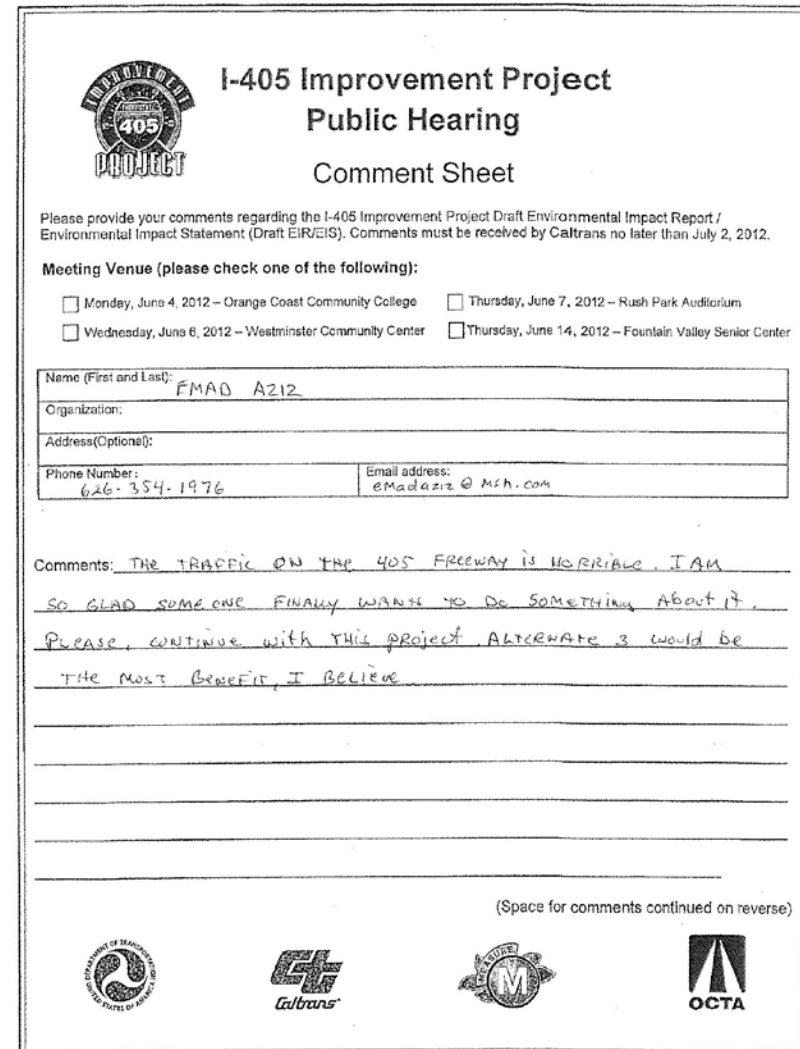 IMPROVEMENT
INTERSTATE
405
PROJECT
I-405 Improvement Project
Public Hearing
Comment Sheet
Please provide your comments regarding the I-405 Improvement Project Draft Environmental Impact Report /
Environmental Impact Statement (Draft EIR/EIS). Comments must be received by Caltrans no later than July 2, 2012.
Meeting Venue (please check one of the following):
Monday, June 4, 2012 – Orange Coast Community College
Thursday, June 7, 2012 – Rush Park Auditorium
Wednesday, June 6, 2012 – Westminster Community Center
Thursday, June 14, 2012 – Fountain Valley Senior Center
Name (First and Last): EMAD AZIZ
Organization:
Address(Optional):
Phone Number: 626-354-1976
Email address: emadaziz@msn.com
Comments: THE TRAFFIC ON THE 405 FREEWAY is HORRIBLE. I AM
SO GLAD SOME ONE FINALLY WANTS TO DO SOMETHING About it.
PLEASE, CONTINUE with THIS PROJECT. ALTERNATE 3 would be
THE MOST BENEFIT, I BELIEVE
(Space for comments continued on reverse)
DEPARTMENT OF TRANSPORTATION
UNITED STATES OF AMERICA
Caltrans
MEASURE
M
OCTA